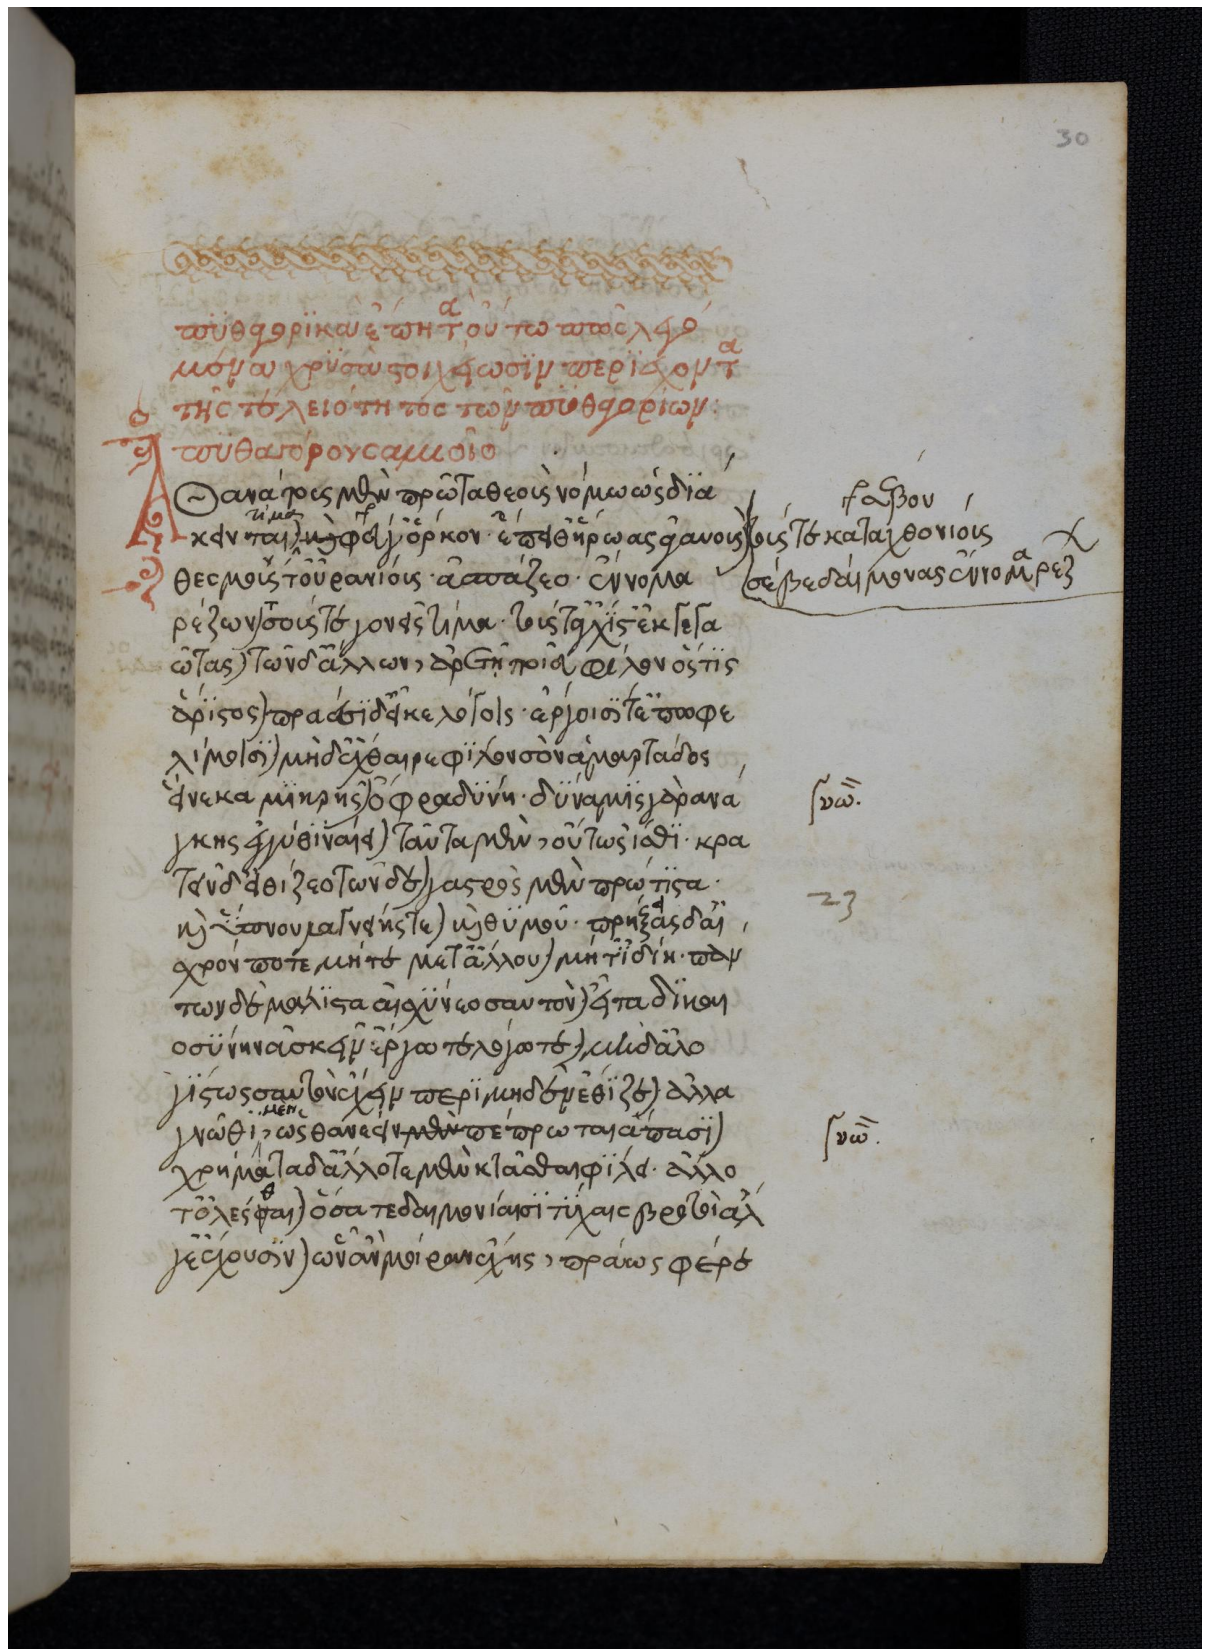 30
πυθαγορικὰ ἔπη τὰ οὕτω πως λεγό
μενα χρυσᾶ στοιχείωσιν περιέχοντα
τῆς τελειότητος τῶν πυθαγορίων:
πυθαγόρου σαμμοίο
Ἀθανάτοις μὲν πρῶτα θεοὺς νόμω ὡς διά
κειν
τίμα
ὅρκον· ἔπειθ' ἥρωας ἀγαυοὺς
σέβου
τοὺς τε καταχθονίοις
θεσμοῖς τ' οὐρανίοις· ἀσπάζεο· ἔννομα
σέβε δαίμονας ἔννομα ῥέζ
ῥέζων) τούς τε γονεῖς τίμα· τοὺς τ' ἄγχις ἐκγεγα
ῶτας) τῶν δ' ἄλλων, ἀρετῇ ποιοῦ φίλον ὅστις
ἄριστος) πραέσι δ' εἶκε λόγοις· ἔργοισί τ' ἐπωφε
λίμοισι) μὴδ' ἔχθαιρε φίλον σὸν ἁμαρτάδος
εἵνεκα μικρῆς) ὄφρα δύνη· δύναμις γὰρ ἀνά
γκης ἐγγύθι ναίει) ταῦτα μὲν, οὕτως ἴσθι· κρα
τεῖν δ' εἰθίζεο τῶνδε) γαστρὸς μὲν πρώτιστα·
καὶ ὕπνου λαγνείης τε) καὶ θυμοῦ· πρήξεις δ' αἰ
23
σχρόν ποτε μήτε μετ' ἄλλου) μήτ' ἰδίη· πάν
των δὲ μάλιστα αἰσχύνεο σαυτὸν) εἶτα δικαι
οσύνην ἀσκεῖν ἔργω τε λόγω τε) μὴδ' ἀλο
γίστως σαυτὸν ἔχειν περὶ μηδὲν ἔθιζε) ἀλλὰ
μὲν
γνῶθι, ὡς θανέειν μὲν πέπρωται ἅπασι)
χρήματα δ' ἄλλοτε μὲν κτᾶσθαι φίλει· ἄλλο
τ' ὀλέσθαι) ὅσα τε δαιμονίαισι τύχαις βροτοὶ ἄλ
γε' ἔχουσιν) ὧν ἂν μοῖραν ἔχης, πράως φέρε